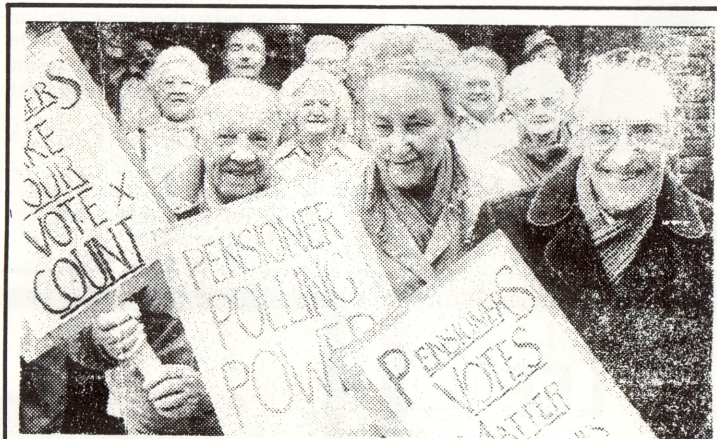 MAKE
YOUR
VOTE X
COUNT
PENSIONER
POLLING
POWER
PENSIONERS
VOTES
MATTER